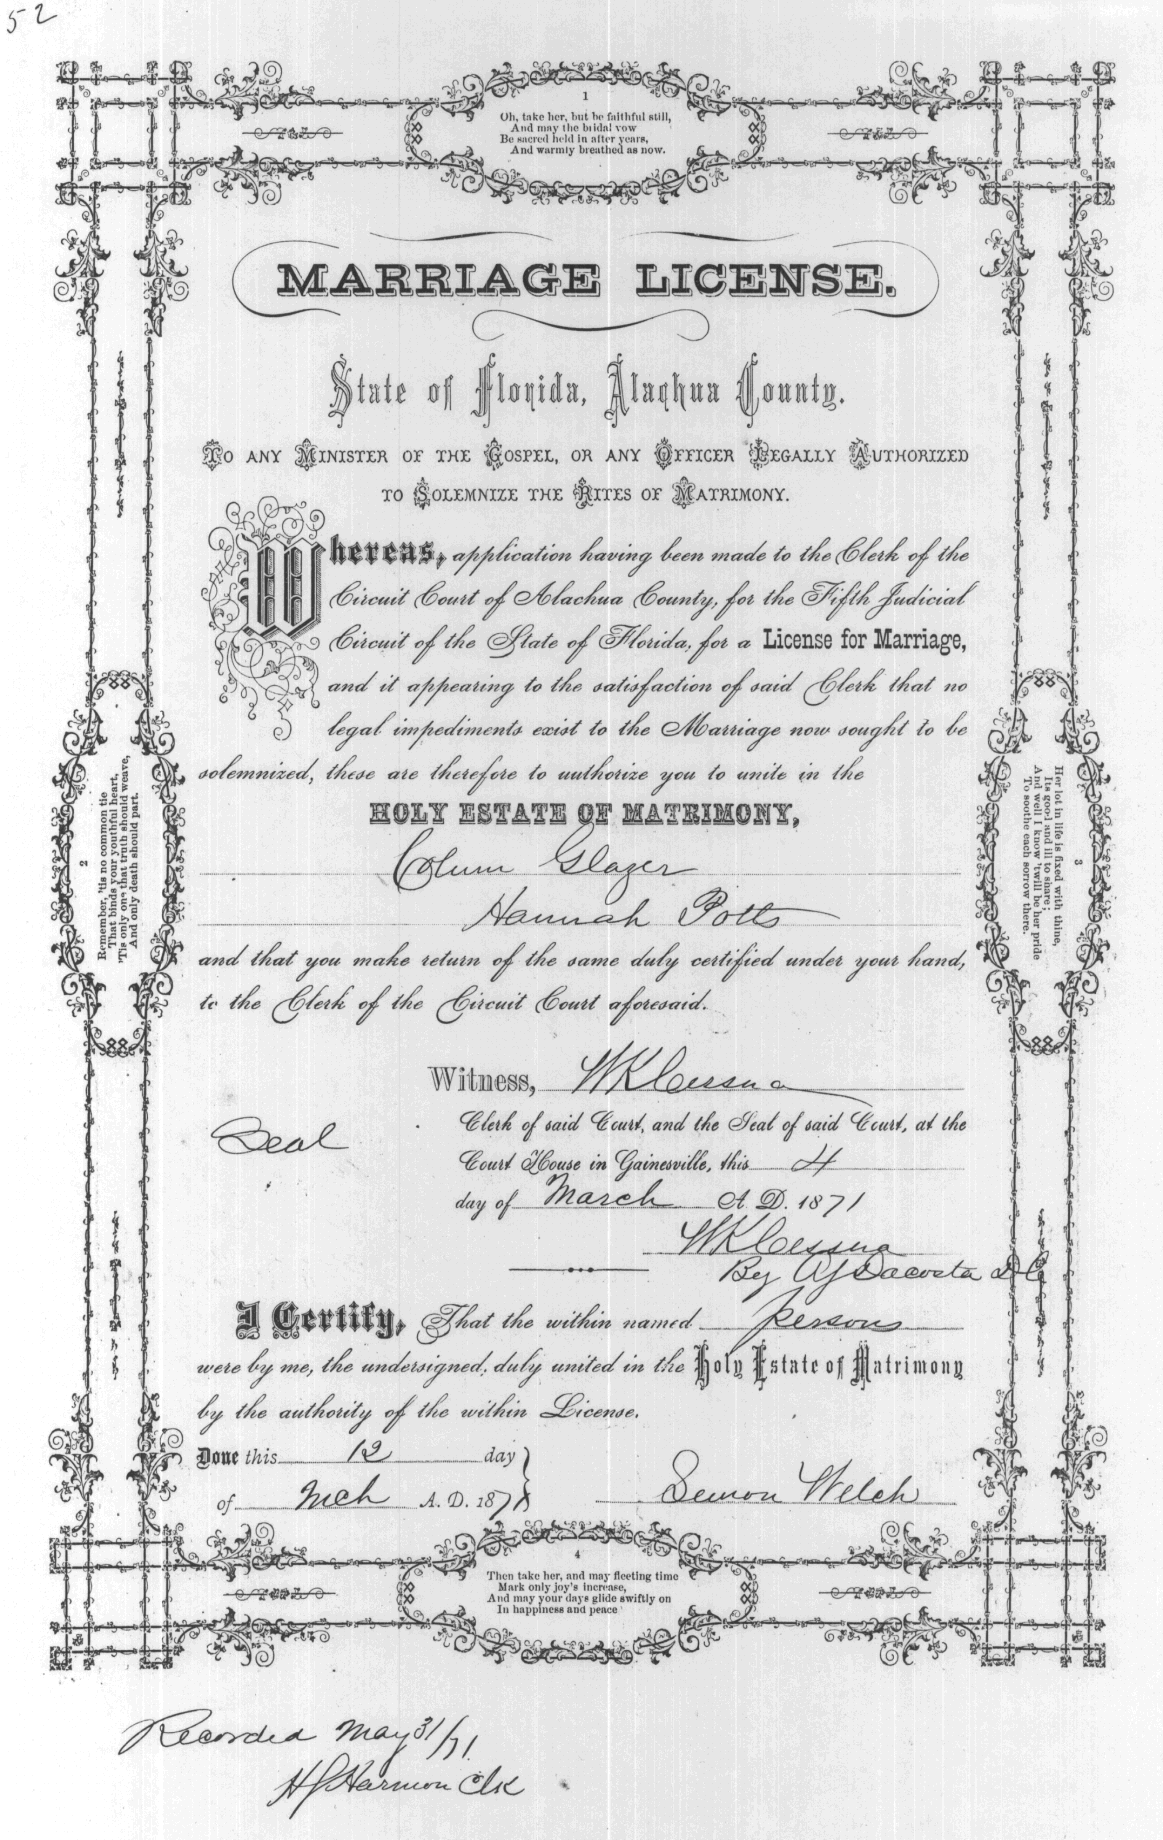 52
1
Oh, take her, but be faithful still,
And may the bridal vow
Be sacred held in after years,
And warmly breathed as now.
MARRIAGE LICENSE.
State of Florida, Alachua County.
TO ANY MINISTER OF THE GOSPEL, OR ANY OFFICER LEGALLY AUTHORIZED
TO SOLEMNIZE THE RITES OF MATRIMONY.
Whereas, application having been made to the Clerk of the
Circuit Court of Alachua County, for the Fifth Judicial
Circuit of the State of Florida, for a License for Marriage,
and it appearing to the satisfaction of said Clerk that no
legal impediments exist to the Marriage now sought to be
solemnized, these are therefore to authorize you to unite in the
HOLY ESTATE OF MATRIMONY,
Colum Glazer
Hannah Potts
and that you make return of the same duly certified under your hand,
to the Clerk of the Circuit Court aforesaid.
2
Remember, 'tis no common tie
That binds your youthful heart,
'Tis only one that truth should weave,
And only death should part.
3
Her lot in life is fixed with thine,
Its good and ill to share;
And well I know 'twill be her pride
To soothe each sorrow there.
Witness, W K Cessna
Seal
Clerk of said Court, and the Seal of said Court, at the
Court House in Gainesville, this 4
day of March A. D. 1871
W K Cessna
By A J Dacosta D C
I Certify, That the within named persons
were by me, the undersigned, duly united in the Holy Estate of Matrimony
by the authority of the within License.
Done this 12 day
of Mch A. D. 1871
Semon Welch
4
Then take her, and may fleeting time
Mark only joy's increase,
And may your days glide swiftly on
In happiness and peace
Recorded May 31/71.
H J Harmon Clk